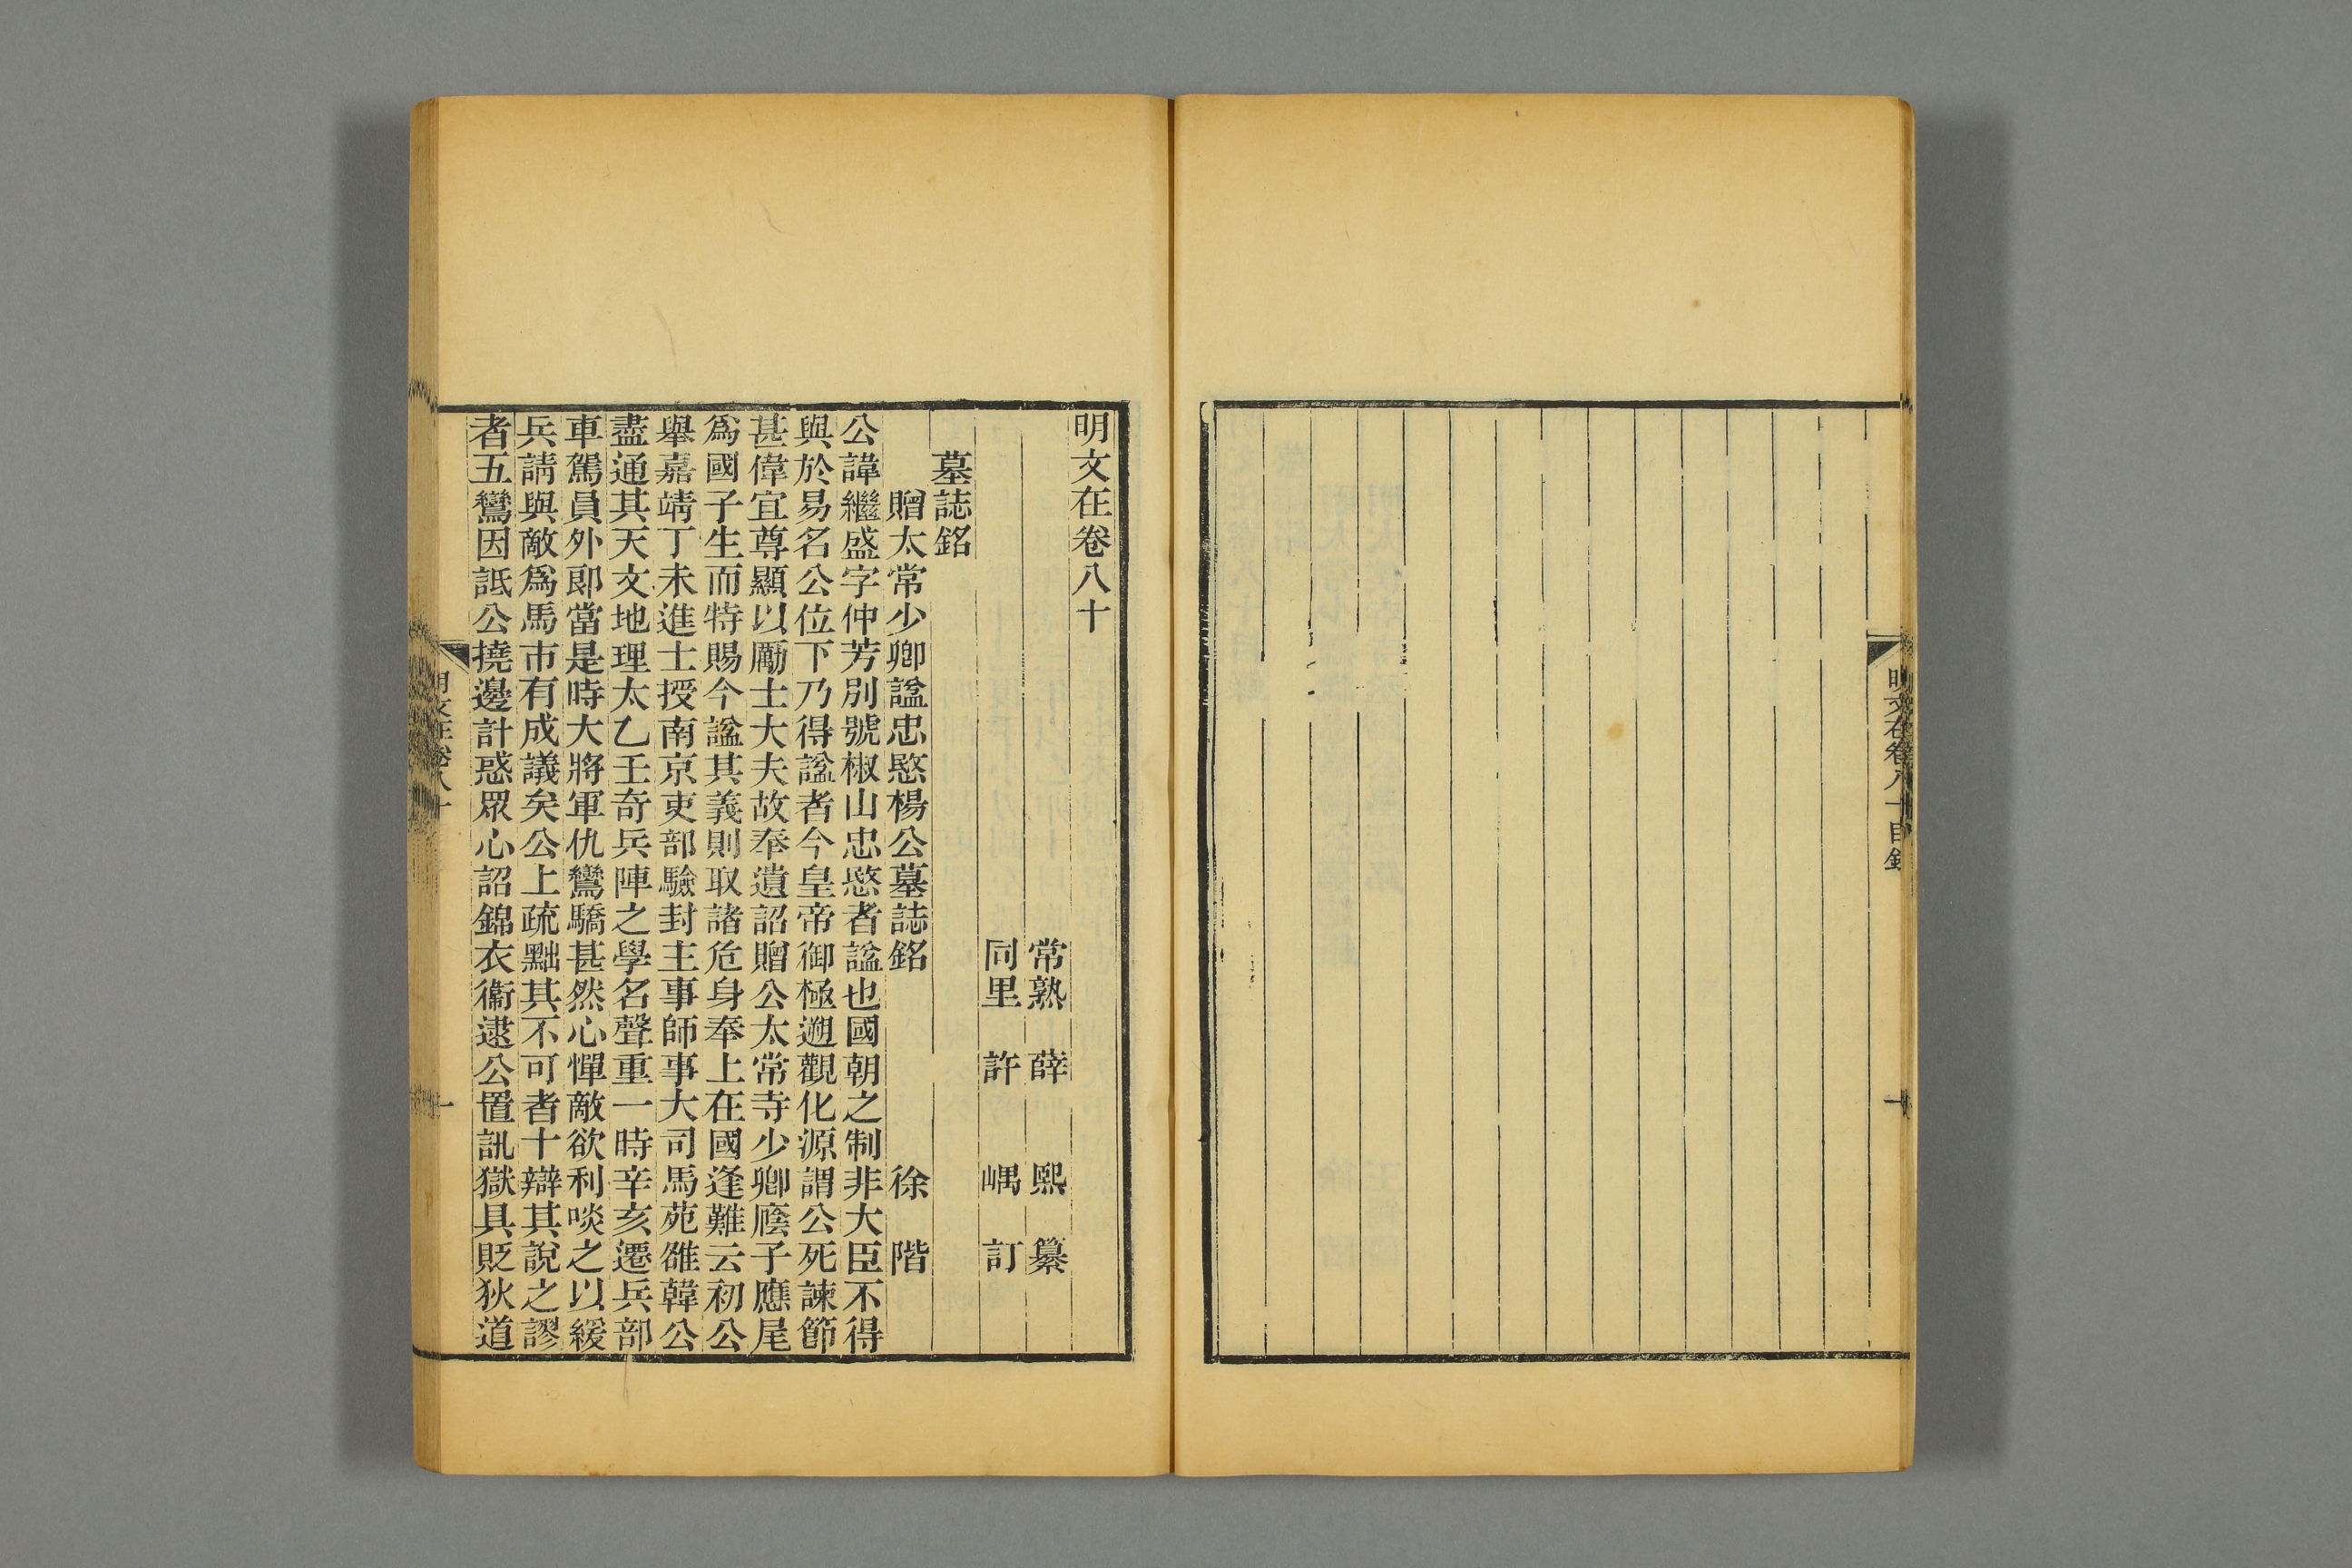 明文在卷八十目錄
一
明文在卷八十
常熟 薛 熙 纂
同里 許 嵎 訂
墓誌銘
贈太常少卿諡忠愍楊公墓誌銘 徐 階
公諱繼盛字仲芳別號椒山忠愍者諡也國朝之制非大臣不得
與於易名公位下乃得諡者今皇帝御極遡觀化源謂公死諫節
甚偉宜尊顯以勵士大夫故奉遺詔贈公太常寺少卿廕子應尾
爲國子生而特賜今諡其義則取諸危身奉上在國逢難云初公
舉嘉靖丁未進士授南京吏部驗封主事師事大司馬苑雒韓公
盡通其天文地理太乙壬奇兵陣之學名聲重一時辛亥遷兵部
車駕員外郎當是時大將軍仇鸞驕甚然心憚敵欲利啖之以緩
兵請與敵爲馬市有成議矣公上疏黜其不可者十辯其說之謬
者五鸞因詆公撓邊計惑眾心詔錦衣衞逮公置訊獄具貶狄道
明文在卷八十
一